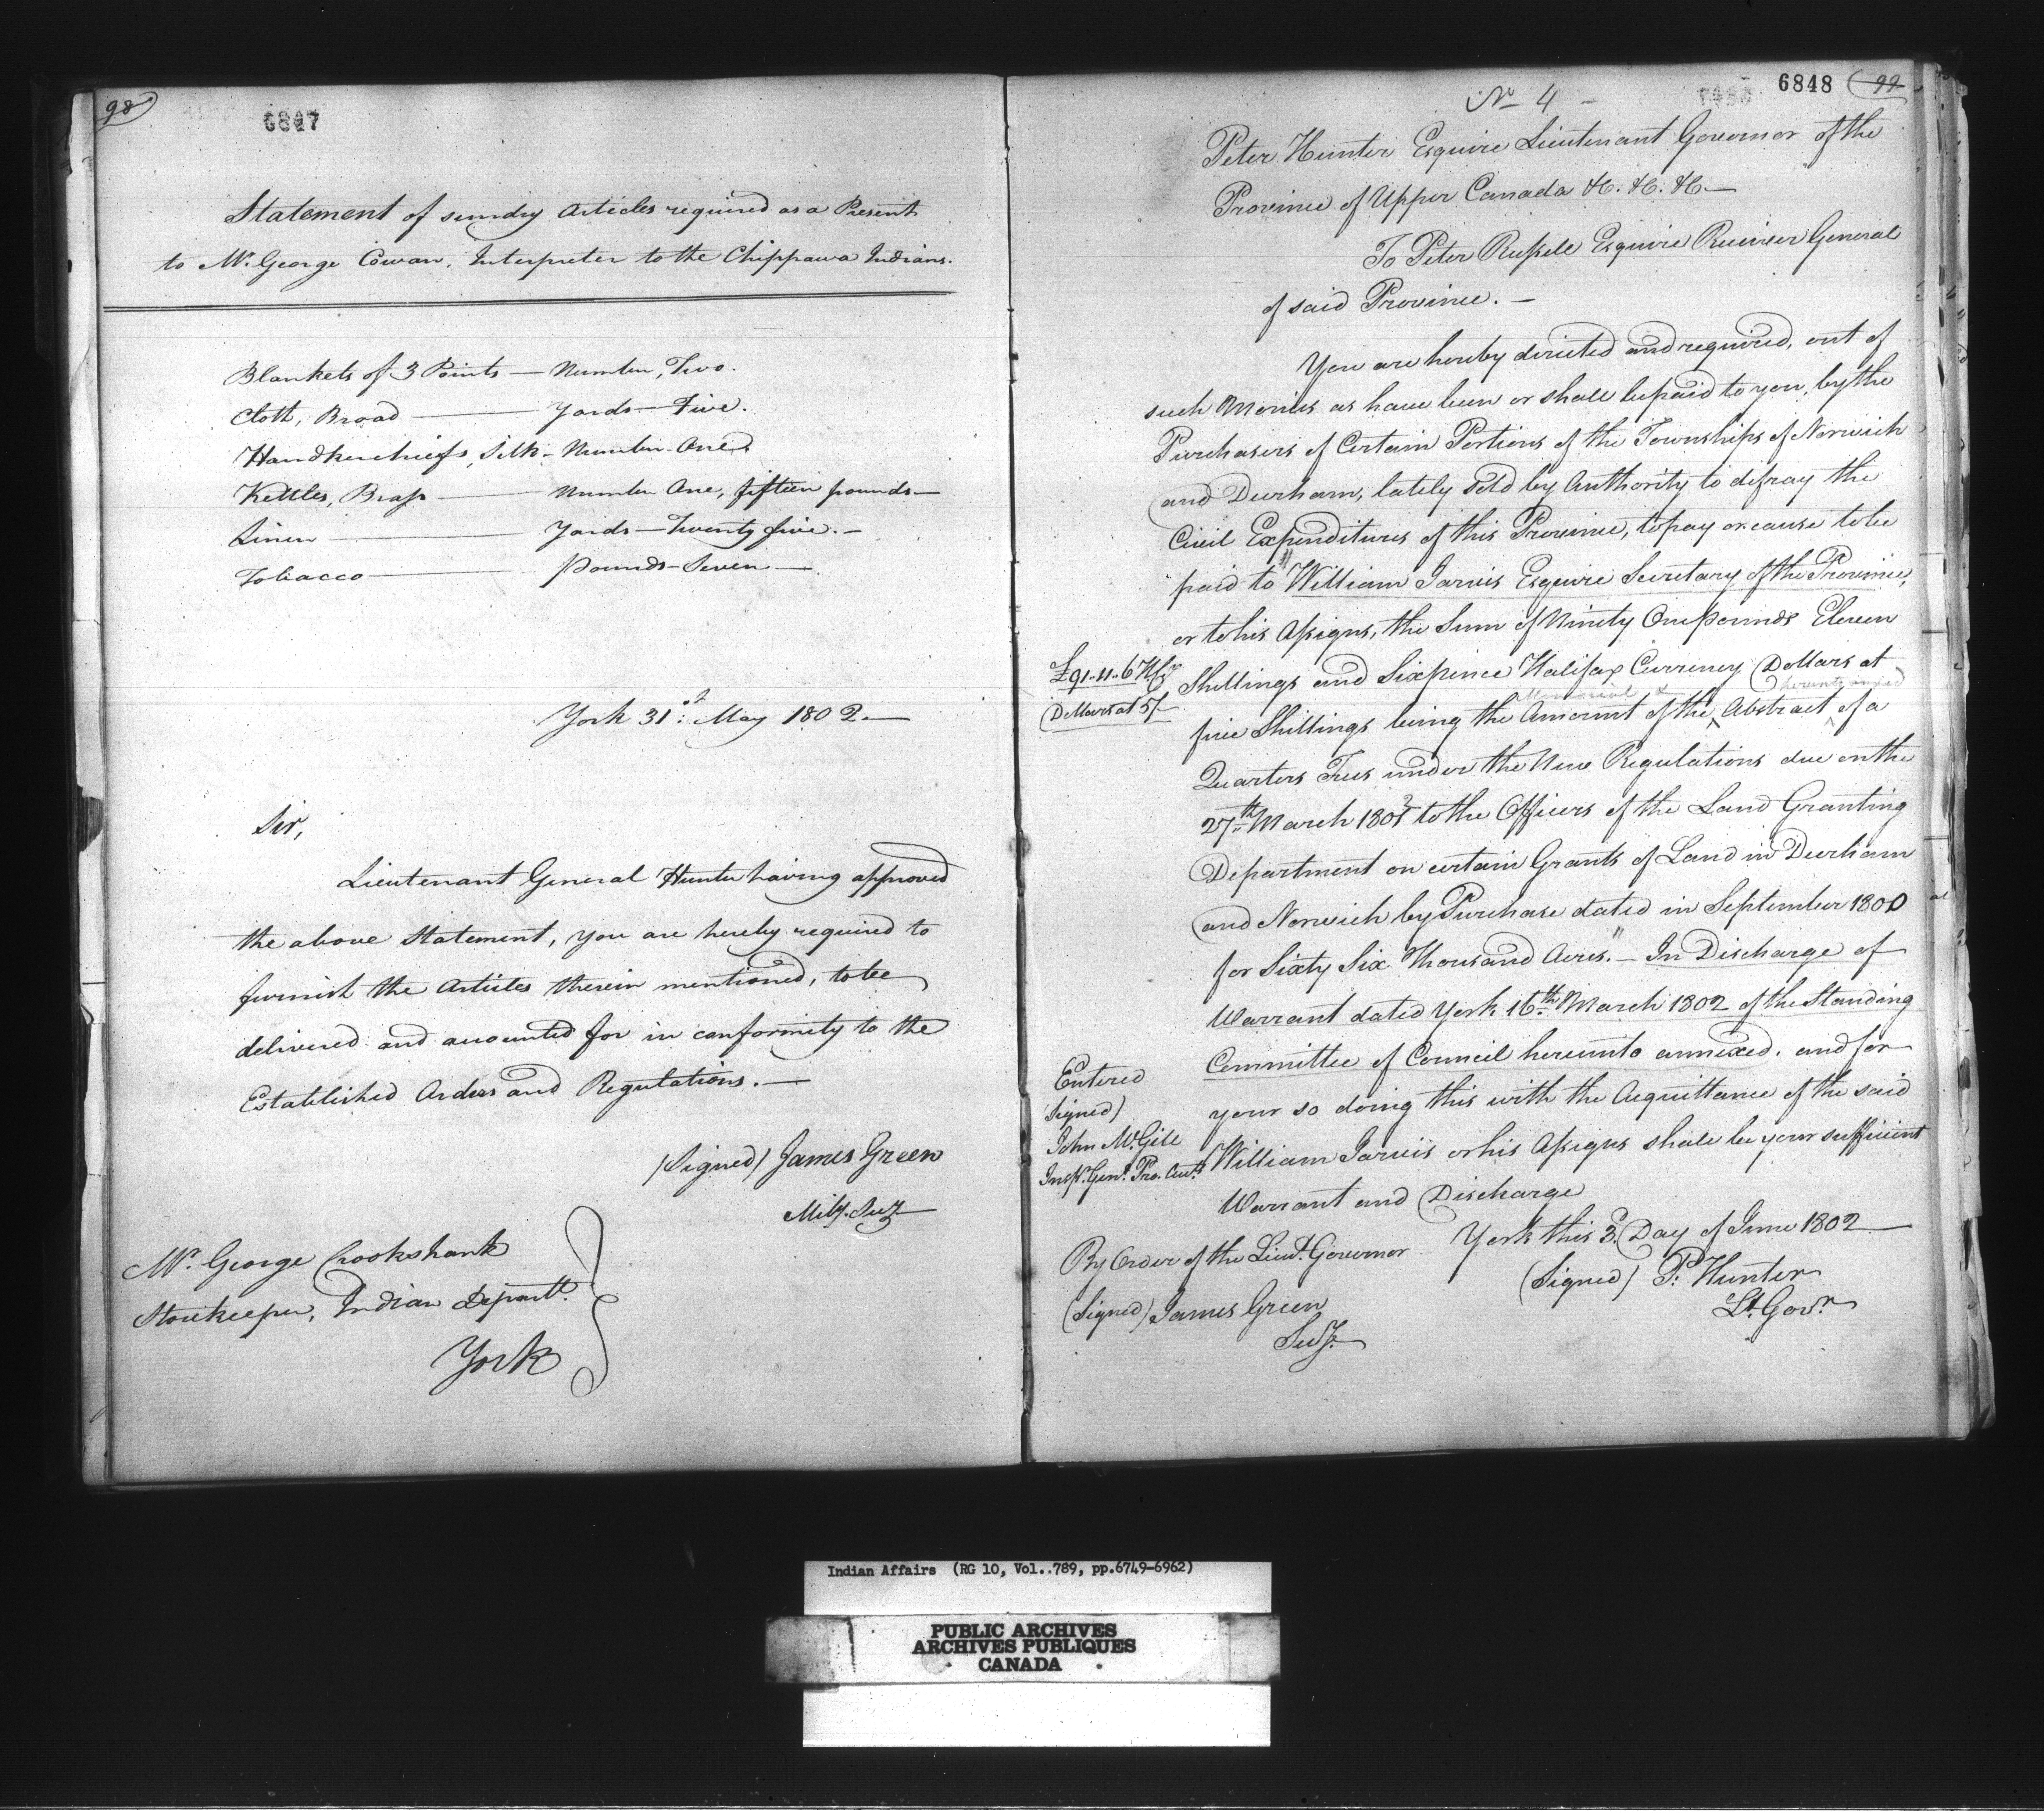 98
6847
Statement of sundry Articles required as a Present
to Mr. George Cowan, Interpreter to the Chippawa Indians.
Blankets of 3 Points — Number, Two.
Cloth, Broad — Yards — Five.
Handkerchiefs, Silk - Number - One
Kettles, Brass — Number One, fifteen pounds —
Linen — Yards — Twenty five. —
Tobacco — Pounds - Seven —
York 31st May 1802. —
Sir,
Lieutenant General Hunter having approved
the above Statement, you are hereby required to
furnish the Articles therein mentioned, to be
delivered and accounted for in conformity to the
Established Orders and Regulations. —
(Signed) James Green
Mily. Secy.
Mr. George Crookshank
Storekeeper, Indian Departt.
York
6848 99
No. 4 —
Peter Hunter Esquire Lieutenant Governor of the
Province of Upper Canada &c. &c. &c —
To Peter Russell Esquire Receiver General
of said Province. —
You are hereby directed and required, out of
such Monies as have been or shall be paid to you, by the
Purchasers of Certain Portions of the Townships of Norwich
and Durham, lately sold by Authority to defray the
Civil Expenditures of this Province, to pay or cause to be
paid to "William Jarvis Esquire Secretary of the Province,
or to his Assigns, the Sum of Ninety One pounds Eleven
£91-11-6 Hfx
Shillings and Sixpence Halifax Currency (Dollars at
Dollars at 5/-
Memorial & hereunto annexed
five Shillings being the Amount of the ^ Abstract ^ of a
Quarters Fees under the New Regulations due on the
27th March 1802 to the Officers of the Land Granting
Department on certain Grants of Land in Durham
and Norwich by Purchase dated in September 1800
for Sixty Six Thousand Acres." — In Discharge of
Warrant dated York 16th March 1802 of the Standing
Committee of Council hereunto annexed. and for
Entered
your so doing this with the Acquittance of the said
(Signed)
John McGill
William Jarvis or his Assigns shall be your sufficient
Inspr. Genl. Pro. Acts.
Warrant and Discharge
York this 3d. Day of June 1802
By Order of the Lieut. Governor
(Signed) P: Hunter
Lt. Govr.
(Signed) James Green
Secy.
Indian Affairs (RG 10, Vol..789, pp.6749-6962)
PUBLIC ARCHIVES
ARCHIVES PUBLIQUES
CANADA